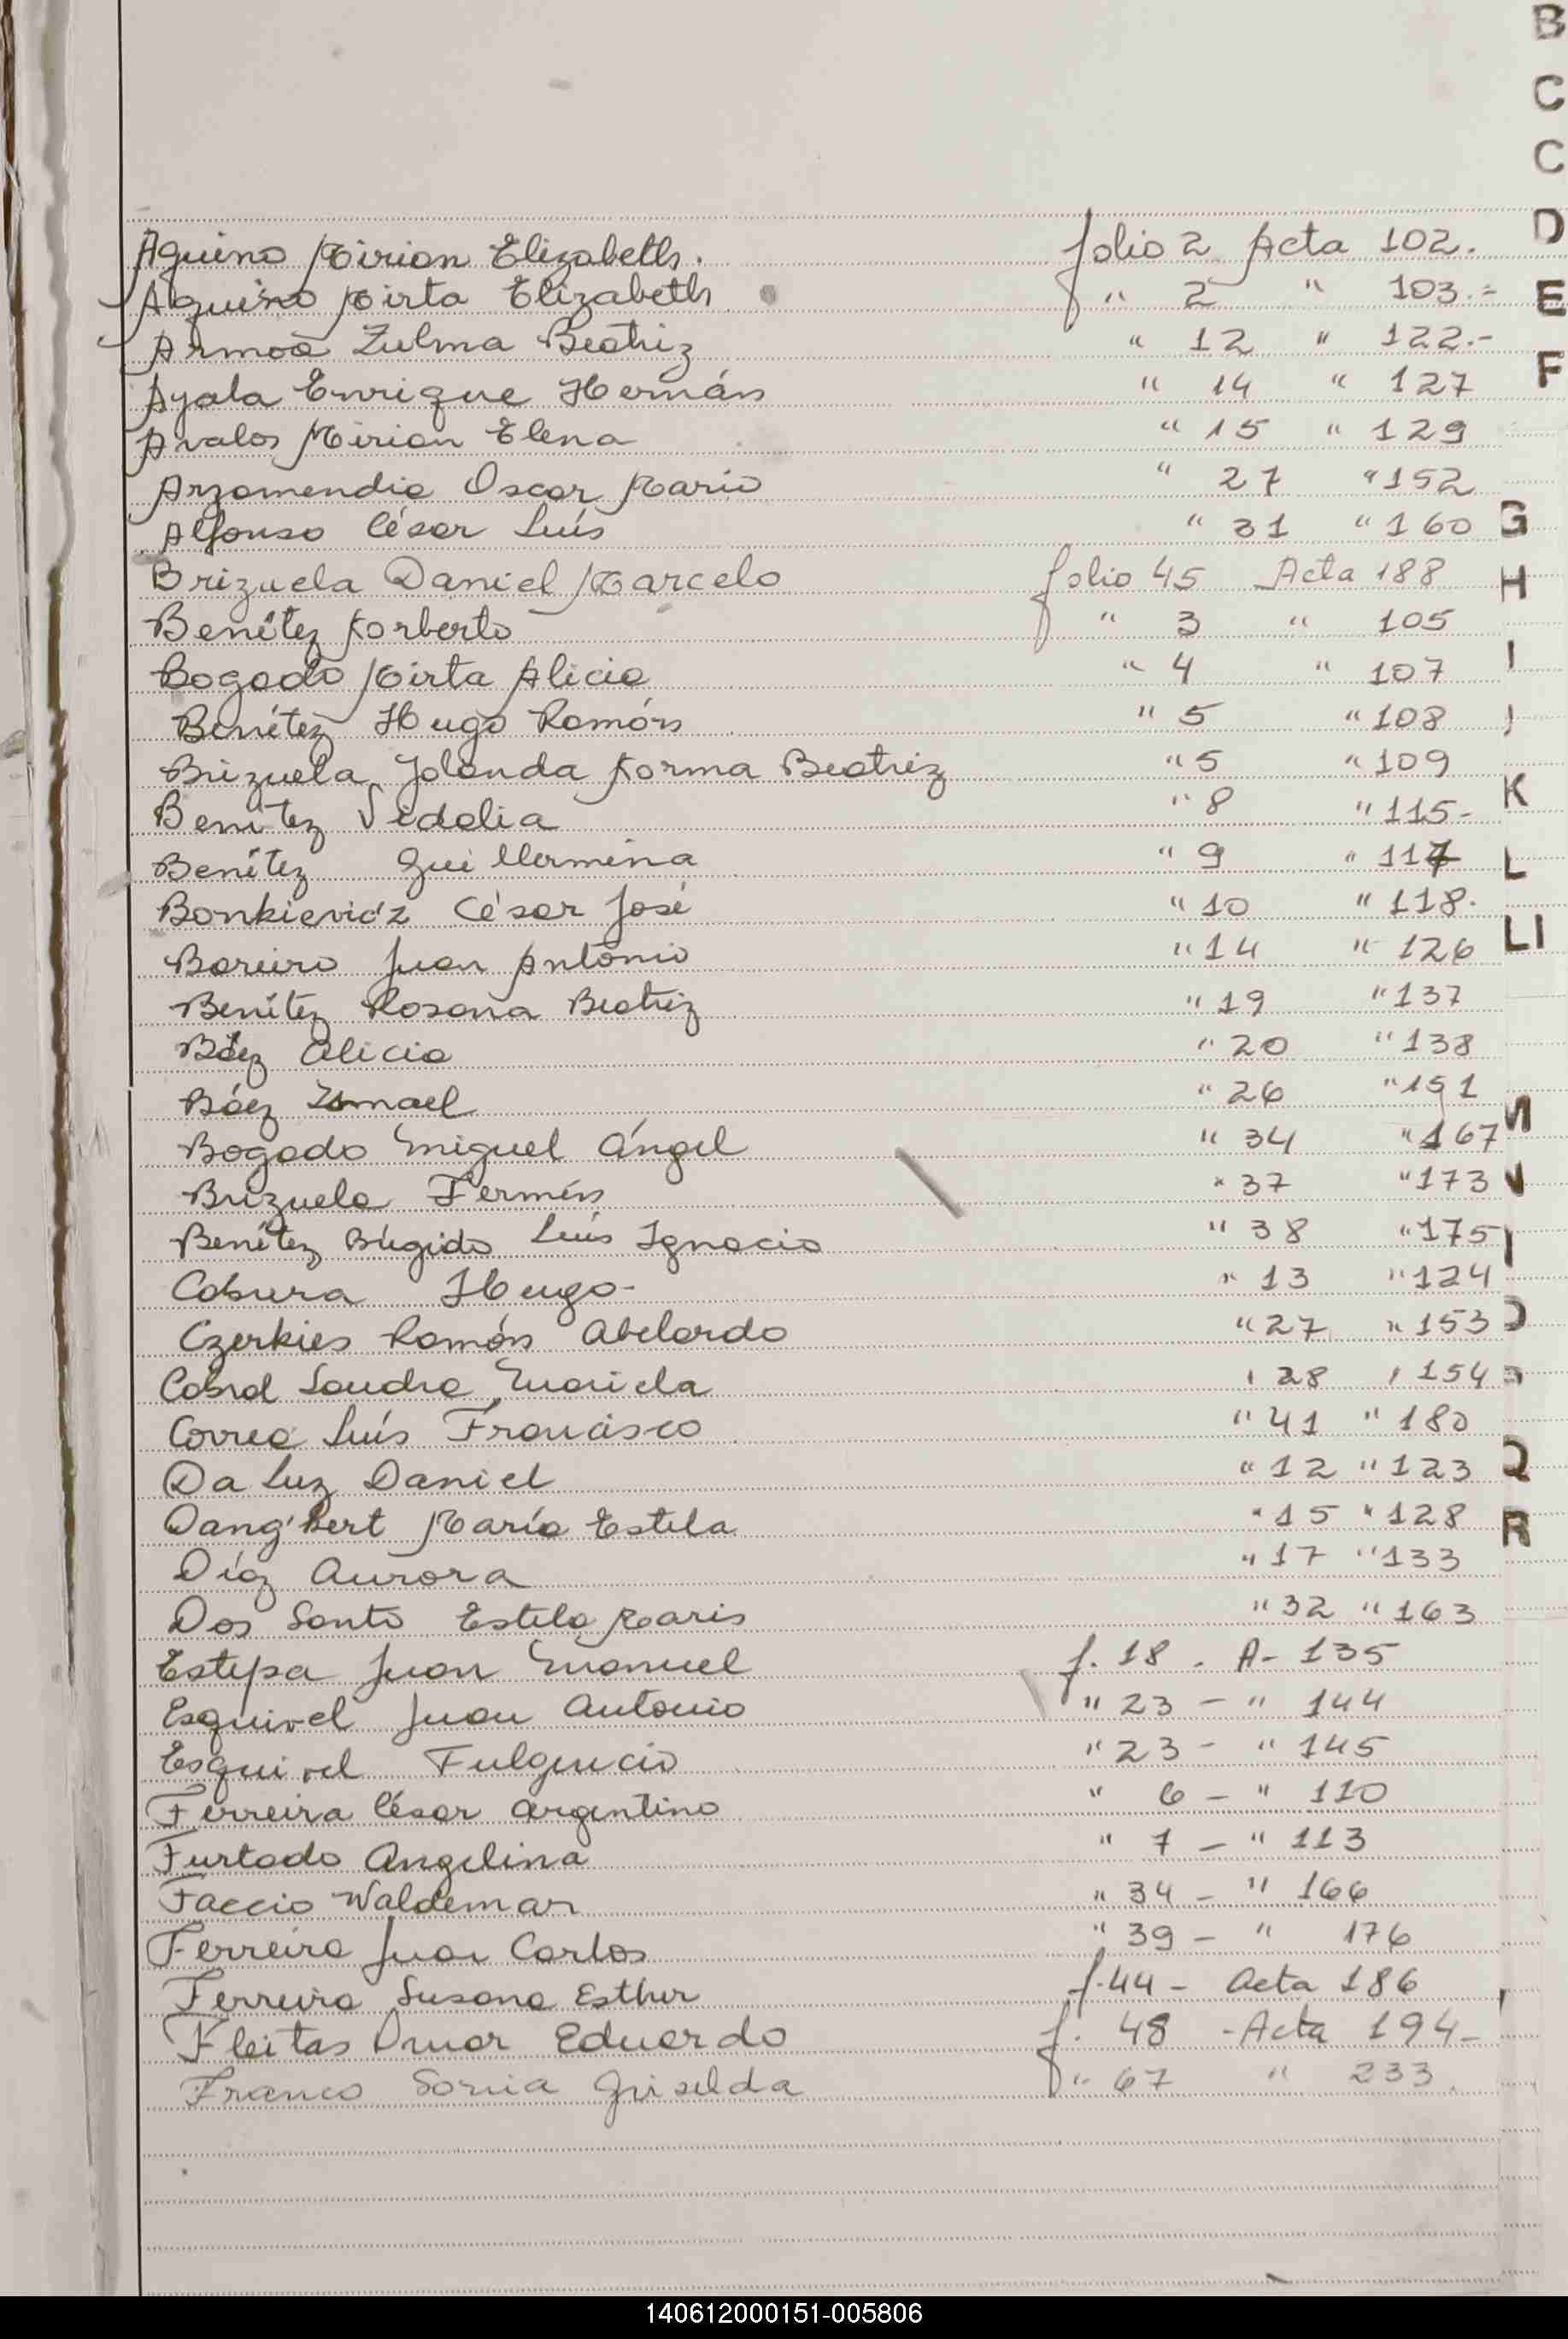 B
C
C
D
E
F
G
H
I
J
K
L
LL
M
N
O
Q
R
Aquino Mirian Elizabeth. folio 2 Acta 102.
Aquino Mirta Elizabeth " 2 " 103.=
Armoa Zulma Beatriz " 12 " 122.-
Ayala Enrique Hernán " 14 " 127
Avalos Mirian Elena " 15 " 129
Arzamendia Oscar Mario " 27 " 152
Alfonso César Luís " 31 " 160
Brizuela Daniel Marcelo folio 45 Acta 188
Benítez Norberto " 3 " 105
Bogado Mirta Alicia " 4 " 107
Benítez Hugo Ramón " 5 " 108
Brizuela Yolanda Norma Beatriz " 5 " 109
Benítez Sidalia " 8 " 115-
Benítez Guillermina " 9 " 117
Bonkievicz César José " 10 " 118.
Bareiro Juan Antonio " 14 " 126
Benítez Rosana Beatriz " 19 " 137
Báez Alicia " 20 " 138
Báez Ismael " 26 " 151
Bogado Miguel Ángel " 34 " 167
Brizuela Fermín " 37 " 173
Benítez Brígido Luís Ignacio " 38 " 175
Cabura Hugo- " 13 " 124
Czerkies Ramón Abelardo " 27 " 153
Cabral Sandra Mariela " 28 " 154
Correa Luís Francisco " 41 " 180
Da Luz Daniel " 12 " 123
Dang'bert María Estela " 15 " 128
Díaz Aurora " 17 " 133
Dos Santo Estela Maris " 32 " 163
Estepa Juan Manuel f. 18 . A- 135
Esquivel Juan Antonio " 23 - " 144
Esquivel Fulgencio " 23 - " 145
Ferreira César Argentino " 6 - " 110
Furtado Angelina " 7 - " 113
Faccio Waldemar " 34 - " 166
Ferreira Juan Carlos " 39 - " 176
Ferreira Susana Esther f.44 - Acta 186
Fleitas Omar Eduardo f. 48 - Acta 194-
Franco Sonia Griselda " 67 " 233.
140612000151-005806